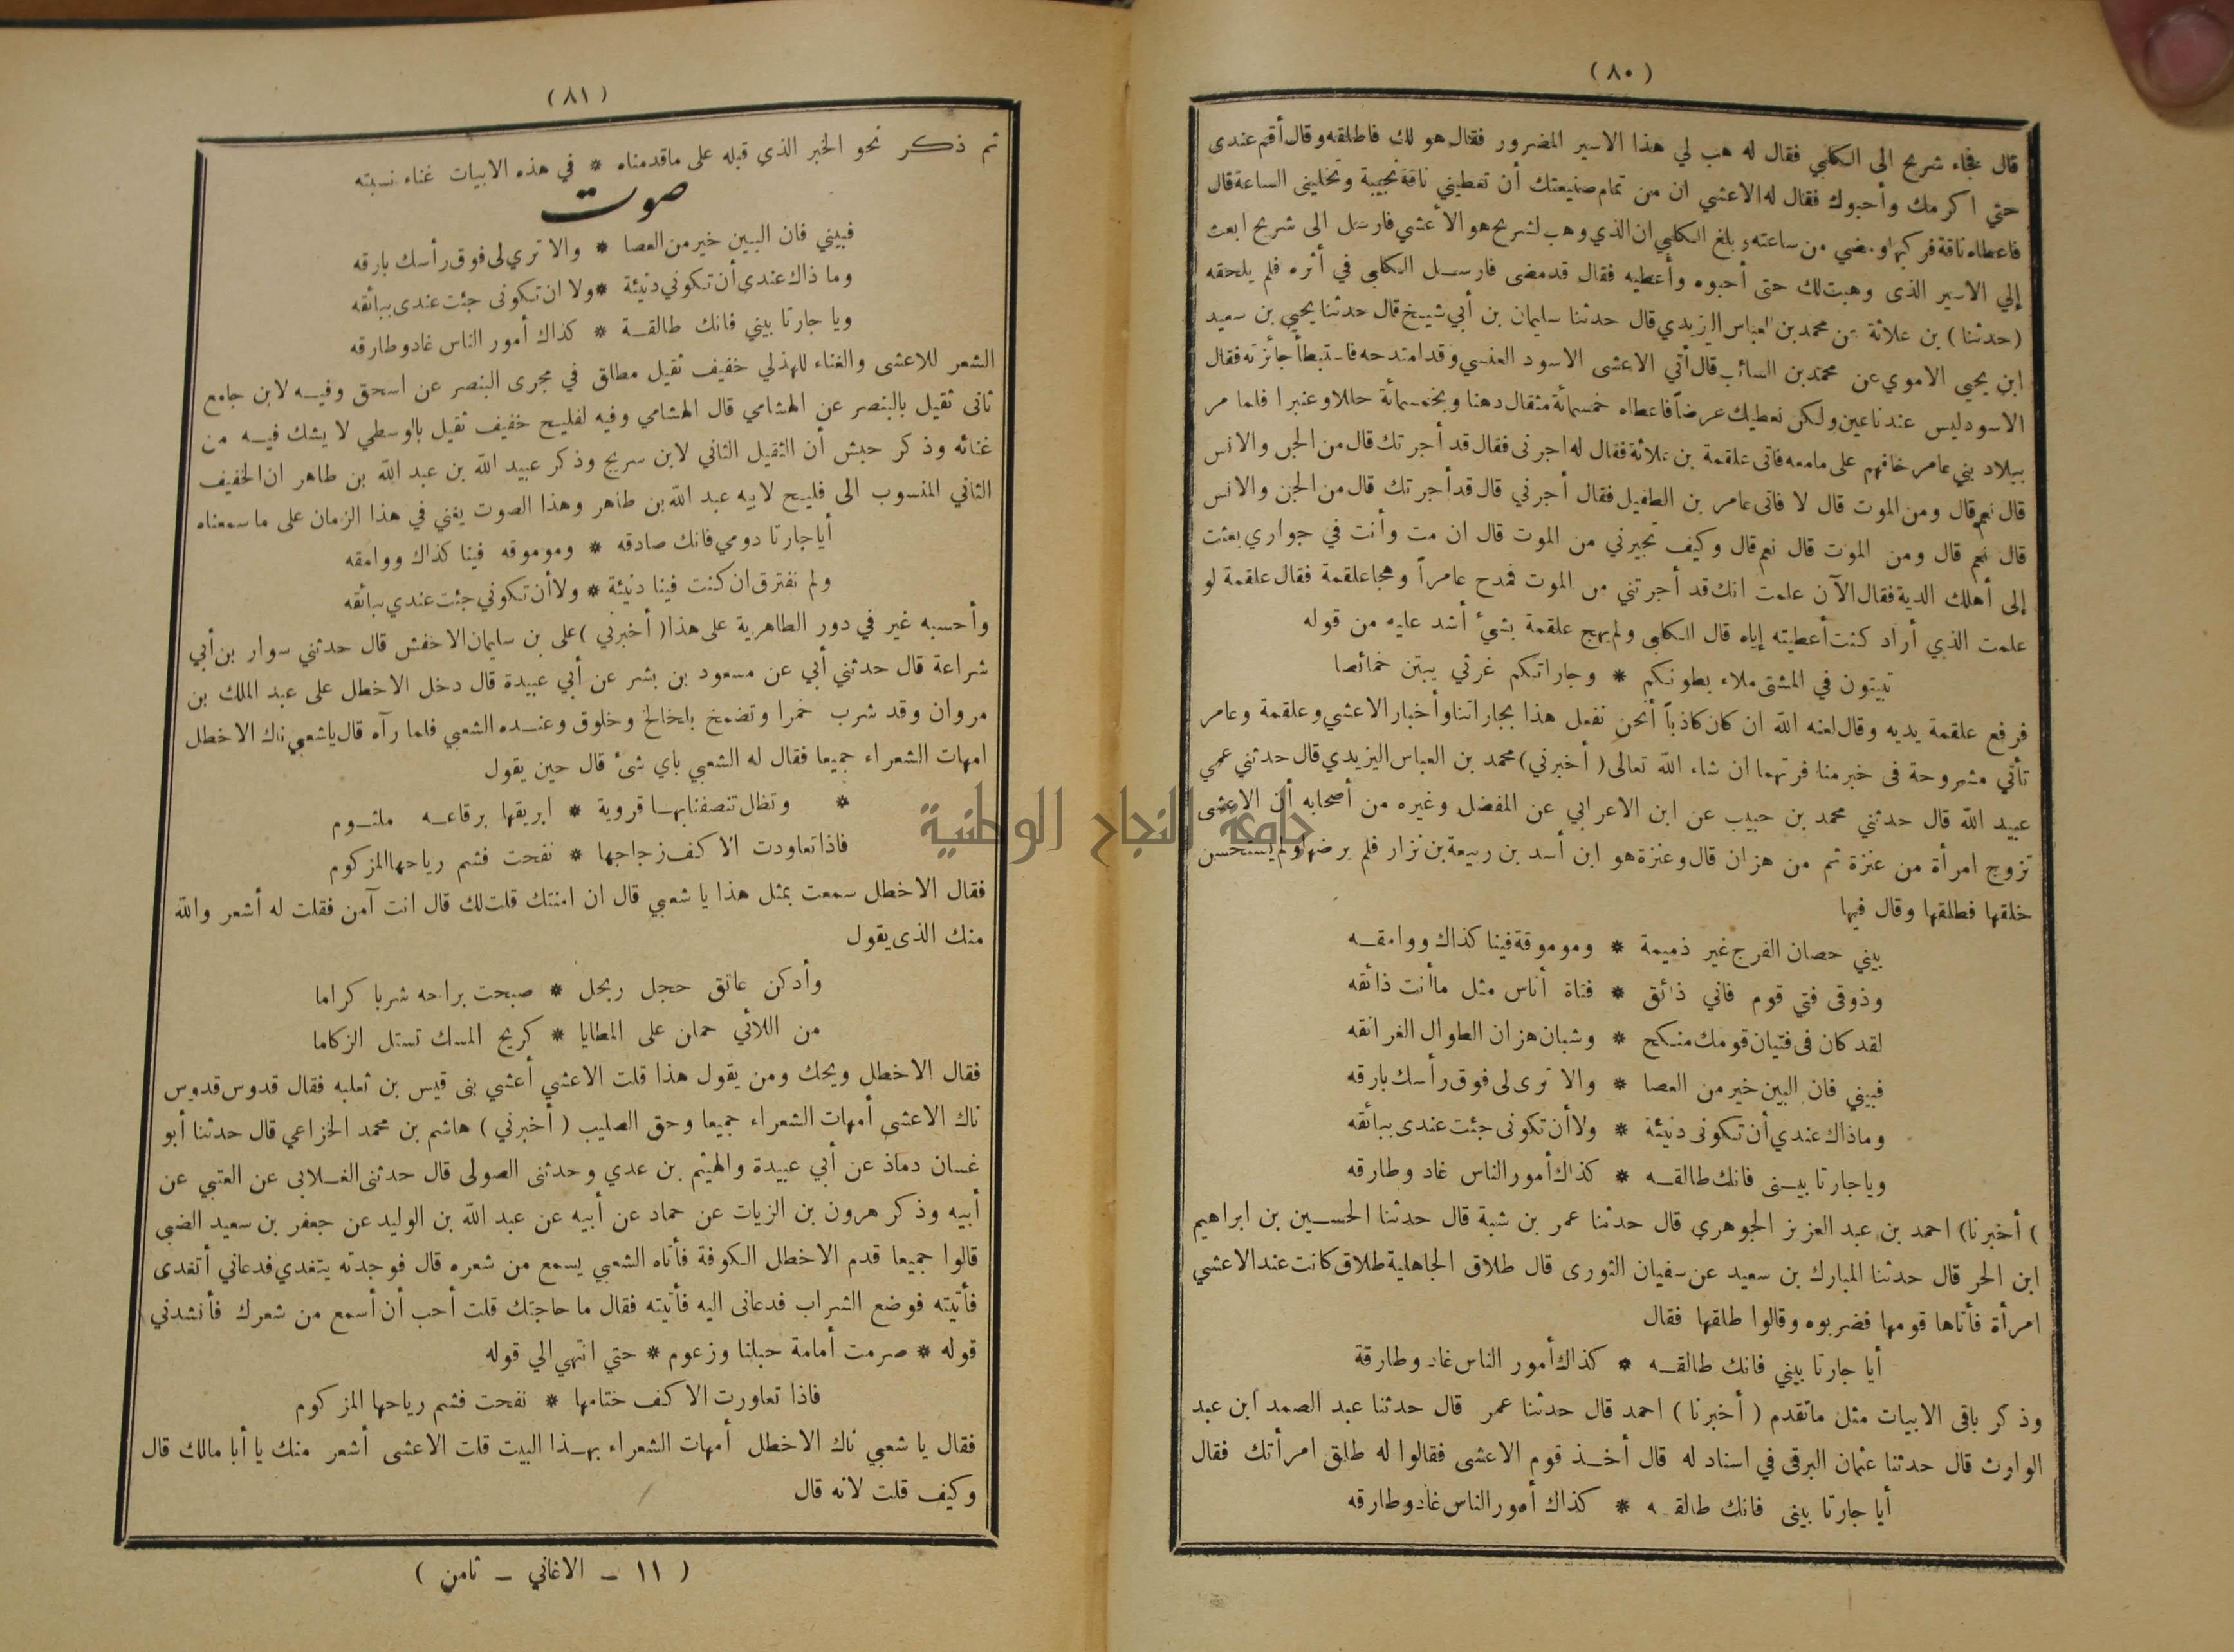 (٨٠)
قال فجاء شريح الى الكلبي فقال له هب لي هذا الاسير المضرور فقال هو لك فاطلقه وقال أقم عندى
حتي اكرمك وأحبوك فقال له الاعشي ان من تمام صنيعتك أن تعطيني ناقة نجيبة وتخليني الساعة قال
فاعطاه ناقة فركبها ومضي من ساعته وبلغ الكلبي ان الذي وهب لشريح هو الأعشي فارسل الى شريح ابعث
إلي الاسير الذى وهبت لك حتى أحبوه وأعطيه فقال قد مضى فارسل الكلبي في أثره فلم يلحقه
(حدثنا) بن علاثة عن محمد بن العباس اليزيدي قال حدثنا سليمان بن أبي شيخ قال حدثنا يحيي بن سعيد
ابن يحيى الاموي عن محمد بن السائب قال أتي الاعشى الاسود العنسي وقد امتدحه فاستبطأ جائزته فقال
الاسود ليس عندنا عين ولكن نعطيك عرضاً فاعطاه خمسمائة مثقال دهنا وبخمسمائة حللا وعنبرا فلما مر
ببلاد بني عامر خافهم على مامعه فاتى علقمة بن علاثة فقال له اجرنى فقال قد أجرتك قال من الجن والانس
قال نعم قال ومن الموت قال لا فاتى عامر بن الطفيل فقال أجرني قال قد أجرتك قال من الجن والانس
قال نعم قال ومن الموت قال نعم قال وكيف تجيرني من الموت قال ان مت وأنت في جواري بعثت
إلى أهلك الدية فقال الآن علمت انك قد أجرتني من الموت فمدح عامراً وهجا علقمة فقال علقمة لو
علمت الذي أراد كنت أعطيته إياه قال الكلبي ولم يهج علقمة بشيء أشد عليه من قوله
تبيتون في المشتى ملاء بطونكم * وجاراتكم غرثي يبتن خمائصا
فرفع علقمة يديه وقال لعنه الله ان كان كاذباً أنحن نفعل هذا بجاراتنا وأخبار الاعشي وعلقمة وعامر
تأتي مشروحة فى خبر منافرتهما ان شاء الله تعالى (أخبرني) محمد بن العباس اليزيدي قال حدثني عمي
عبيد الله قال حدثني محمد بن حبيب عن ابن الاعرابي عن المفضل وغيره من أصحابه أن الاعشى
تزوج امرأة من عنزة ثم من هزان قال وعنزة هو ابن أسد بن ربيعة بن نزار فلم يرضها ولم يستحسن
خلقها فطلقها وقال فيها
بيني حصان الفرج غير ذميمة * وموموقة فينا كذاك ووامقه
وذوقى فتي قوم فاني ذائق * فتاة أناس مثل ماأنت ذائقه
لقد كان فى فتيان قومك منكح * وشبان هزان الطوال الغرانقه
فبيني فان البين خير من العصا * والا ترى لى فوق رأسك بارقه
وماذاك عندي أن تكونى دنيئة * ولا أن تكونى جئت عندى ببائقه
وياجارتا بيني فانك طالقه * كذاك أمور الناس غاد وطارقه
(أخبرنا) احمد بن عبد العزيز الجوهري قال حدثنا عمر بن شبة قال حدثنا الحسين بن ابراهيم
ابن الحر قال حدثنا المبارك بن سعيد عن سفيان الثورى قال طلاق الجاهلية طلاق كانت عند الاعشي
امرأة فأتاها قومها فضربوه وقالوا طلقها فقال
أيا جارتا بيني فانك طالقه * كذاك أمور الناس غاد وطارقة
وذكر باقى الابيات مثل ماتقدم (أخبرنا) احمد قال حدثنا عمر قال حدثنا عبد الصمد ابن عبد
الوارث قال حدثنا عثمان البرقى في اسناد له قال أخذ قوم الاعشى فقالوا له طلق امرأتك فقال
أيا جارتا بينى فانك طالقه * كذاك أمور الناس غاد وطارقه
(٨١)
ثم ذكر نحو الخبر الذي قبله على ماقدمناه * في هذه الابيات غناء نسبته
صوت
فبيني فان البين خير من العصا * والا تري لى فوق رأسك بارقه
وما ذاك عندي أن تكوني دنيئة * ولا ان تكونى جئت عندى ببائقه
ويا جارتا بيني فانك طالقة * كذاك أمور الناس غاد وطارقه
الشعر للاعشى والغناء للهذلي خفيف ثقيل مطلق في مجرى البنصر عن اسحق وفيه لابن جامع
ثانى ثقيل بالبنصر عن الهشامي قال الهشامي وفيه لفليح خفيف ثقيل بالوسطي لا يشك فيه من
غنائه وذكر حبش أن الثقيل الثاني لابن سريج وذكر عبيد الله بن عبد الله بن طاهر ان الخفيف
الثاني المنسوب الى فليح لابيه عبد الله بن طاهر وهذا الصوت يغني في هذا الزمان على ما سمعناه
أيا جارتا دومي فانك صادقه * وموموقه فينا كذاك ووامقه
ولم نفترق ان كنت فينا دنيئة * ولا أن تكوني جئت عندي ببائقه
وأحسبه غير في دور الطاهرية على هذا (أخبرني) على بن سليمان الاخفش قال حدثني سوار بن أبي
شراعة قال حدثني أبي عن مسعود بن بشر عن أبي عبيدة قال دخل الاخطل على عبد الملك بن
مروان وقد شرب خمرا وتضمخ بلخالخ وخلوق وعنده الشعبي فلما رآه قال ياشعبي ناك الاخطل
امهات الشعراء جميعا فقال له الشعبي باي شئ قال حين يقول
* وتظل تنصفنا بها قروية * ابريقها برقاعه ملثوم
فاذا تعاودت الاكف زجاجها * نفحت فشم رياحها المزكوم
فقال الاخطل سمعت بمثل هذا يا شعبي قال ان امنتك قلت لك قال انت آمن فقلت له أشعر والله
منك الذى يقول
وأدكن عاتق حجل ربحل * صبحت براحه شربا كراما
من اللائي حملن على المطايا * كريح المسك تستل الزكاما
فقال الاخطل ويحك ومن يقول هذا قلت الاعشي أعشي بنى قيس بن ثعلبه فقال قدوس قدوس
ناك الاعشى أمهات الشعراء جميعا وحق الصليب (أخبرني) هاشم بن محمد الخزاعي قال حدثنا أبو
غسان دماذ عن أبي عبيدة والهيثم بن عدي وحدثنى الصولى قال حدثنى الغلابى عن العتبي عن
أبيه وذكر هرون بن الزيات عن حماد عن أبيه عن عبد الله بن الوليد عن جعفر بن سعيد الضبى
قالوا جميعا قدم الاخطل الكوفة فأتاه الشعبي يسمع من شعره قال فوجدته يتغدي فدعاني أتغدى
فأتيته فوضع الشراب فدعانى اليه فأتيته فقال ما حاجتك قلت أحب أن أسمع من شعرك فأنشدني
قوله * صرمت أمامة حبلنا وزعوم * حتي انتهي الي قوله
فاذا تعاورت الاكف ختامها * نفحت فشم رياحها المزكوم
فقال يا شعبي ناك الاخطل أمهات الشعراء بهذا البيت قلت الاعشى أشعر منك يا أبا مالك قال
وكيف قلت لانه قال
(١١ – الاغاني – ثامن)
جامعة النجاح الوطنية